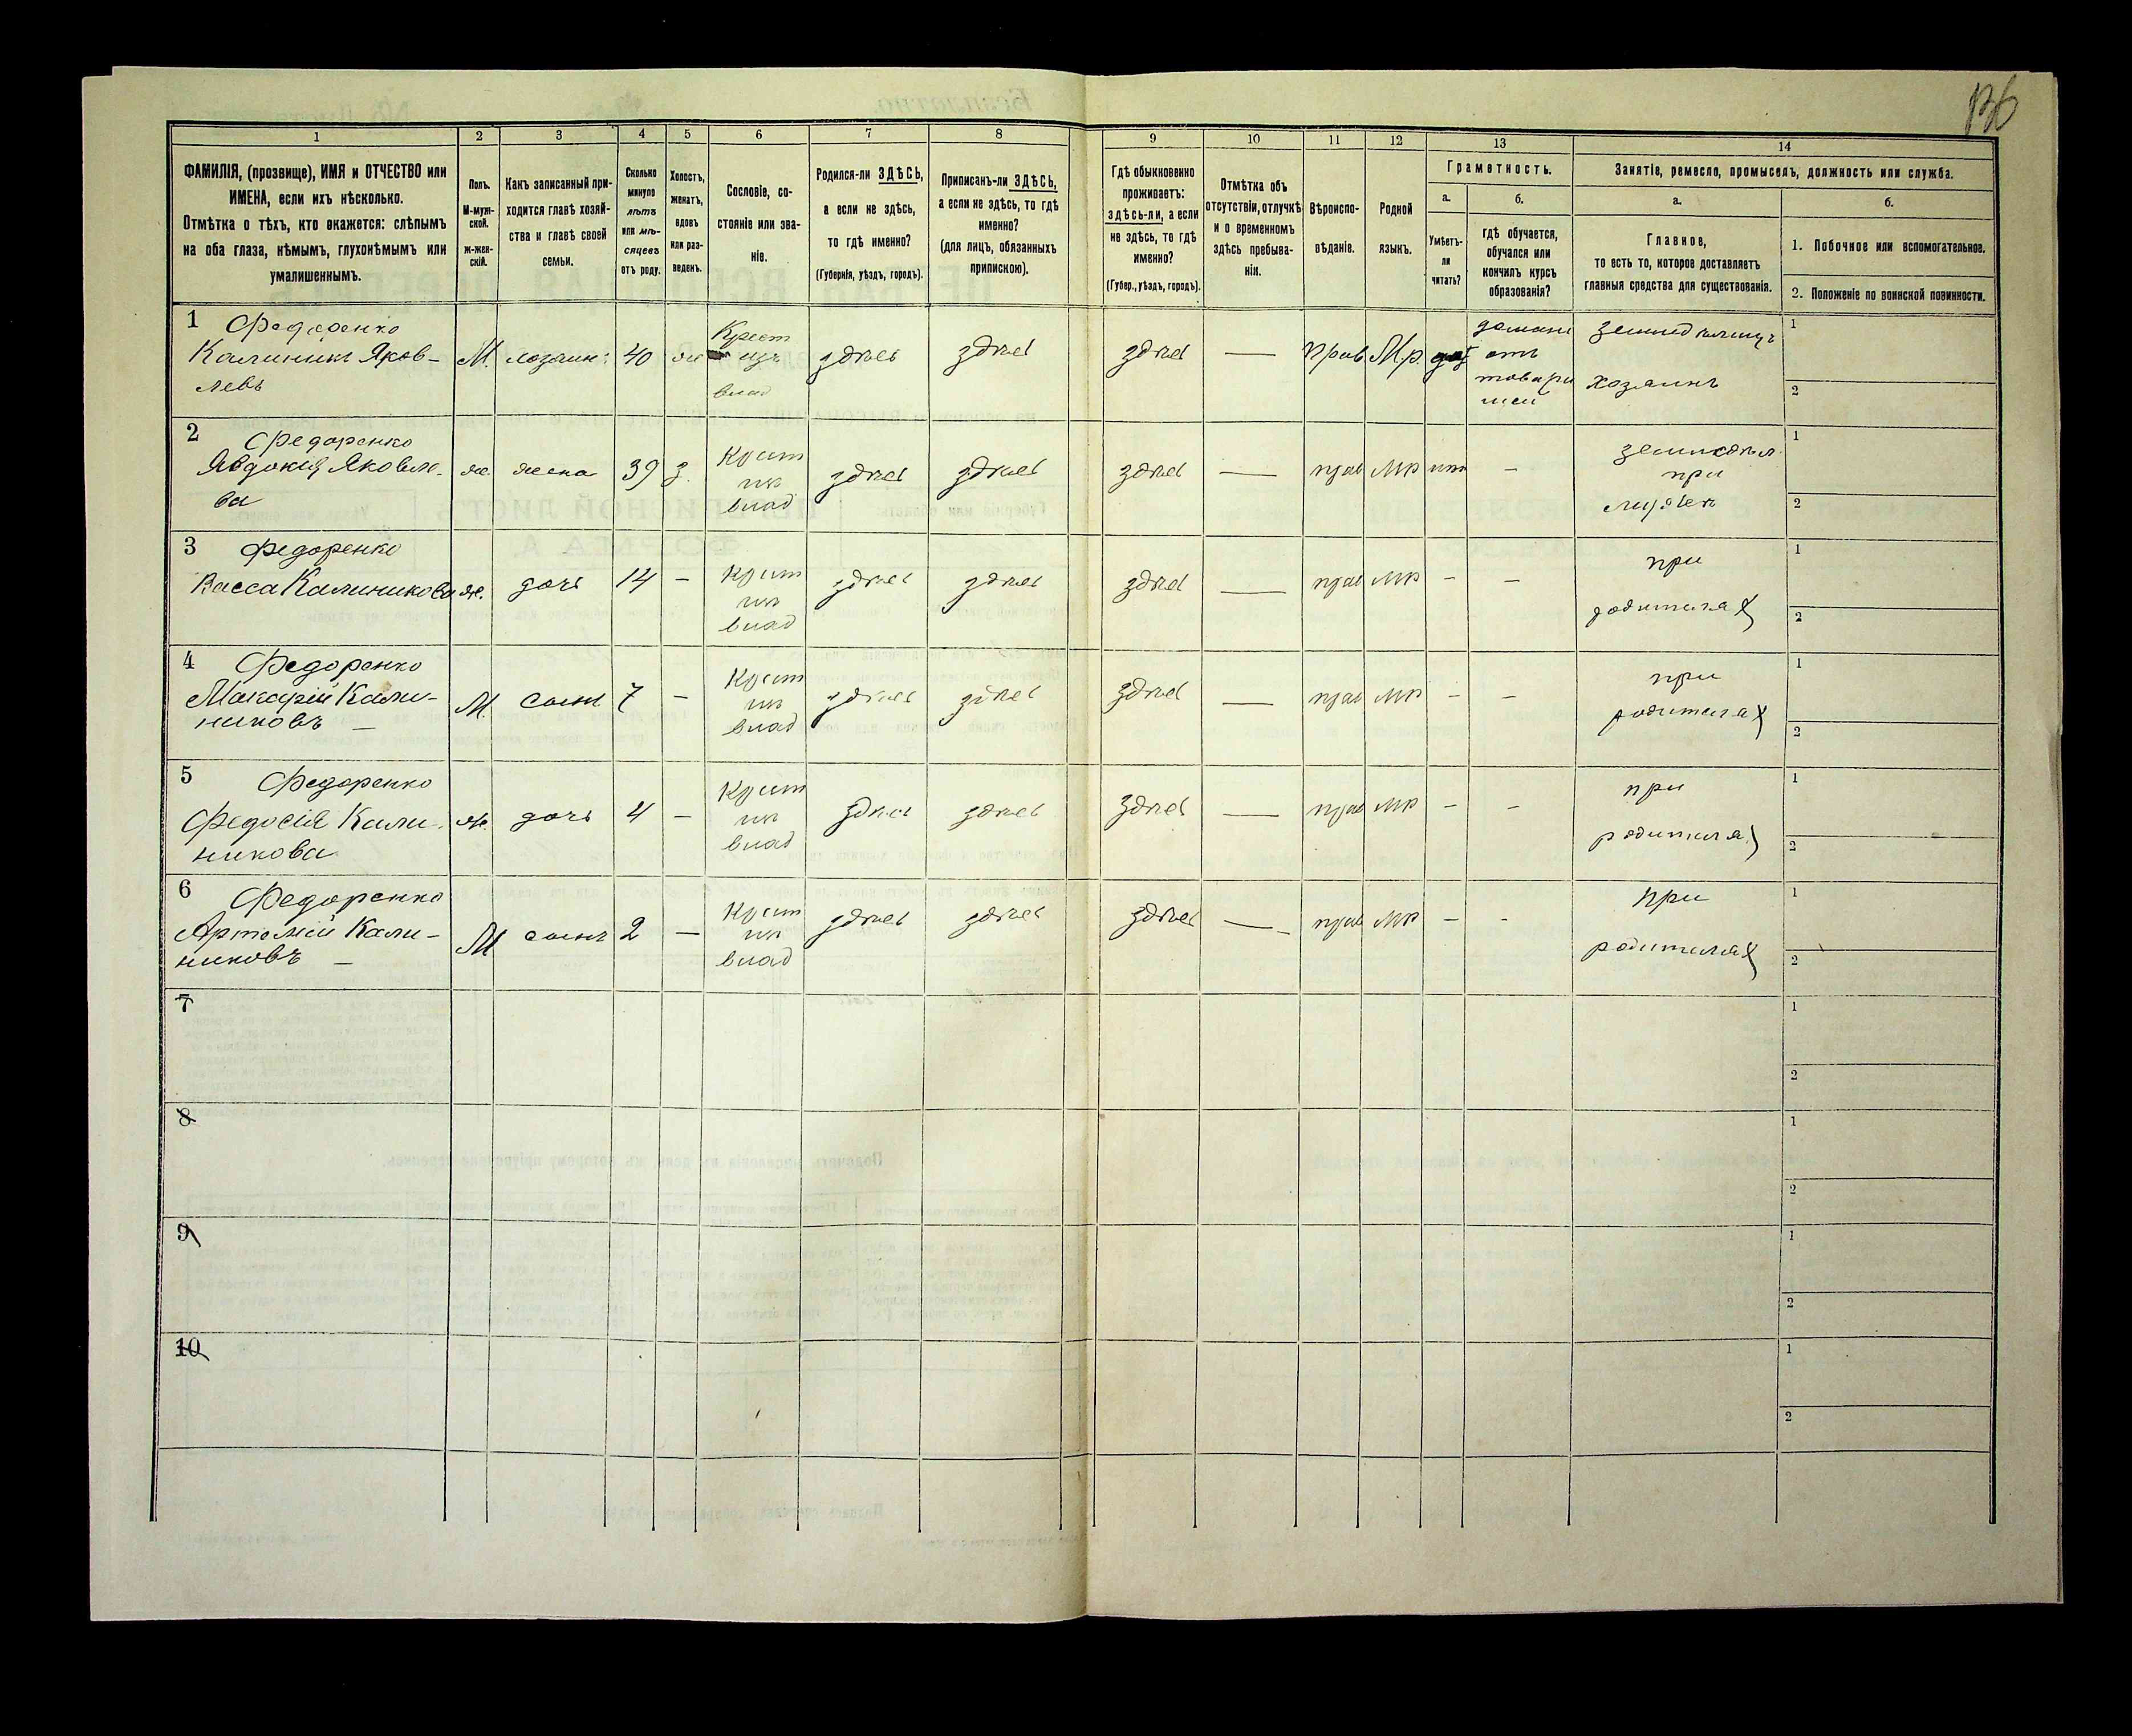 136
1
2
3
4
5
6
7
8
9
10
11
12
13
14
ФАМИЛІЯ, (прозвище), ИМЯ и ОТЧЕСТВО или
ИМЕНА, если ихъ нѣсколько.
Отмѣтка о тѣхъ, кто окажется: слѣпымъ
на оба глаза, нѣмымъ, глухонѣмымъ или
умалишеннымъ.
Полъ.
М-муж-
ской.
ж-жен-
скій.
Какъ записанный при-
ходится главѣ хозяй-
ства и главѣ своей
семьи.
Сколько
минуло
лѣтъ
или мѣ-
сяцевъ
отъ роду.
Холостъ,
женатъ,
вдовъ
или раз-
веденъ.
Сословіе, со-
стояніе или зва-
ніе.
Родился-ли ЗДѢСЬ,
а если не здѣсь,
то гдѣ именно?
(Губернія, уѣздъ, городъ).
Приписанъ-ли ЗДѢСЬ,
а если не здѣсь, то гдѣ
именно?
(для лицъ, обязанныхъ
припискою).
Гдѣ обыкновенно
проживаетъ:
здѣсь-ли, а если
не здѣсь, то гдѣ
именно?
(Губер., уѣздъ, городъ).
Отмѣтка объ
отсутствіи, отлучкѣ
и о временномъ
здѣсь пребыва-
ніи.
Вѣроиспо-
вѣданіе.
Родной
языкъ.
Грамотность.
а.
Умѣетъ-
ли
читать?
б.
гдѣ обучается,
обучался или
кончилъ курсъ
образованія?
Занятіе, ремесло, промыселъ, должность или служба.
а.
Главное,
то есть то, которое доставляетъ
главныя средства для существованія.
б.
1. Побочное или вспомогательное.
2. Положеніе по воинской повинности.
1 Федоренко
Калиникъ Яков-
левъ
М.
хозяин
40
ж
Крест
изъ
влад
здѣсь
здѣсь
здѣсь
—
Прав
М.р.
да
домаш
отъ
товари
щей
земледѣлецъ
хозяинъ
1
2
2 Федоренко
Явдокія Яковле-
ва
ж.
жена
39
з.
Крест
из
влад
здѣсь
здѣсь
здѣсь
—
прав
мр
нѣт
-
земледѣл.
при
мужѣ
1
2
3 Федоренко
Васса Калиникова
ж.
дочь
14
-
Крест
из
влад
здѣсь
здѣсь
здѣсь
—
прав
мр
-
-
при
родителях
1
2
4 Федоренко
Макарій Кали-
никовъ —
М.
сынъ
7
-
Крест
из
влад
здѣсь
здѣсь
здѣсь
—
прав
мр
-
-
при
родителях
1
2
5 Федоренко
Федосія Кали-
никова
ж.
дочь
4
-
Крест
из
влад
здѣсь
здѣсь
здѣсь
—
прав
мр
-
-
при
родителях
1
2
6 Федоренко
Артемій Кали-
никовъ —
М
сынъ
2
—
Крест
из
влад
здѣсь
здѣсь
здѣсь
—
прав
мр
-
-
при
родителях
1
2
7
1
2
8
1
2
9
1
2
10
1
2